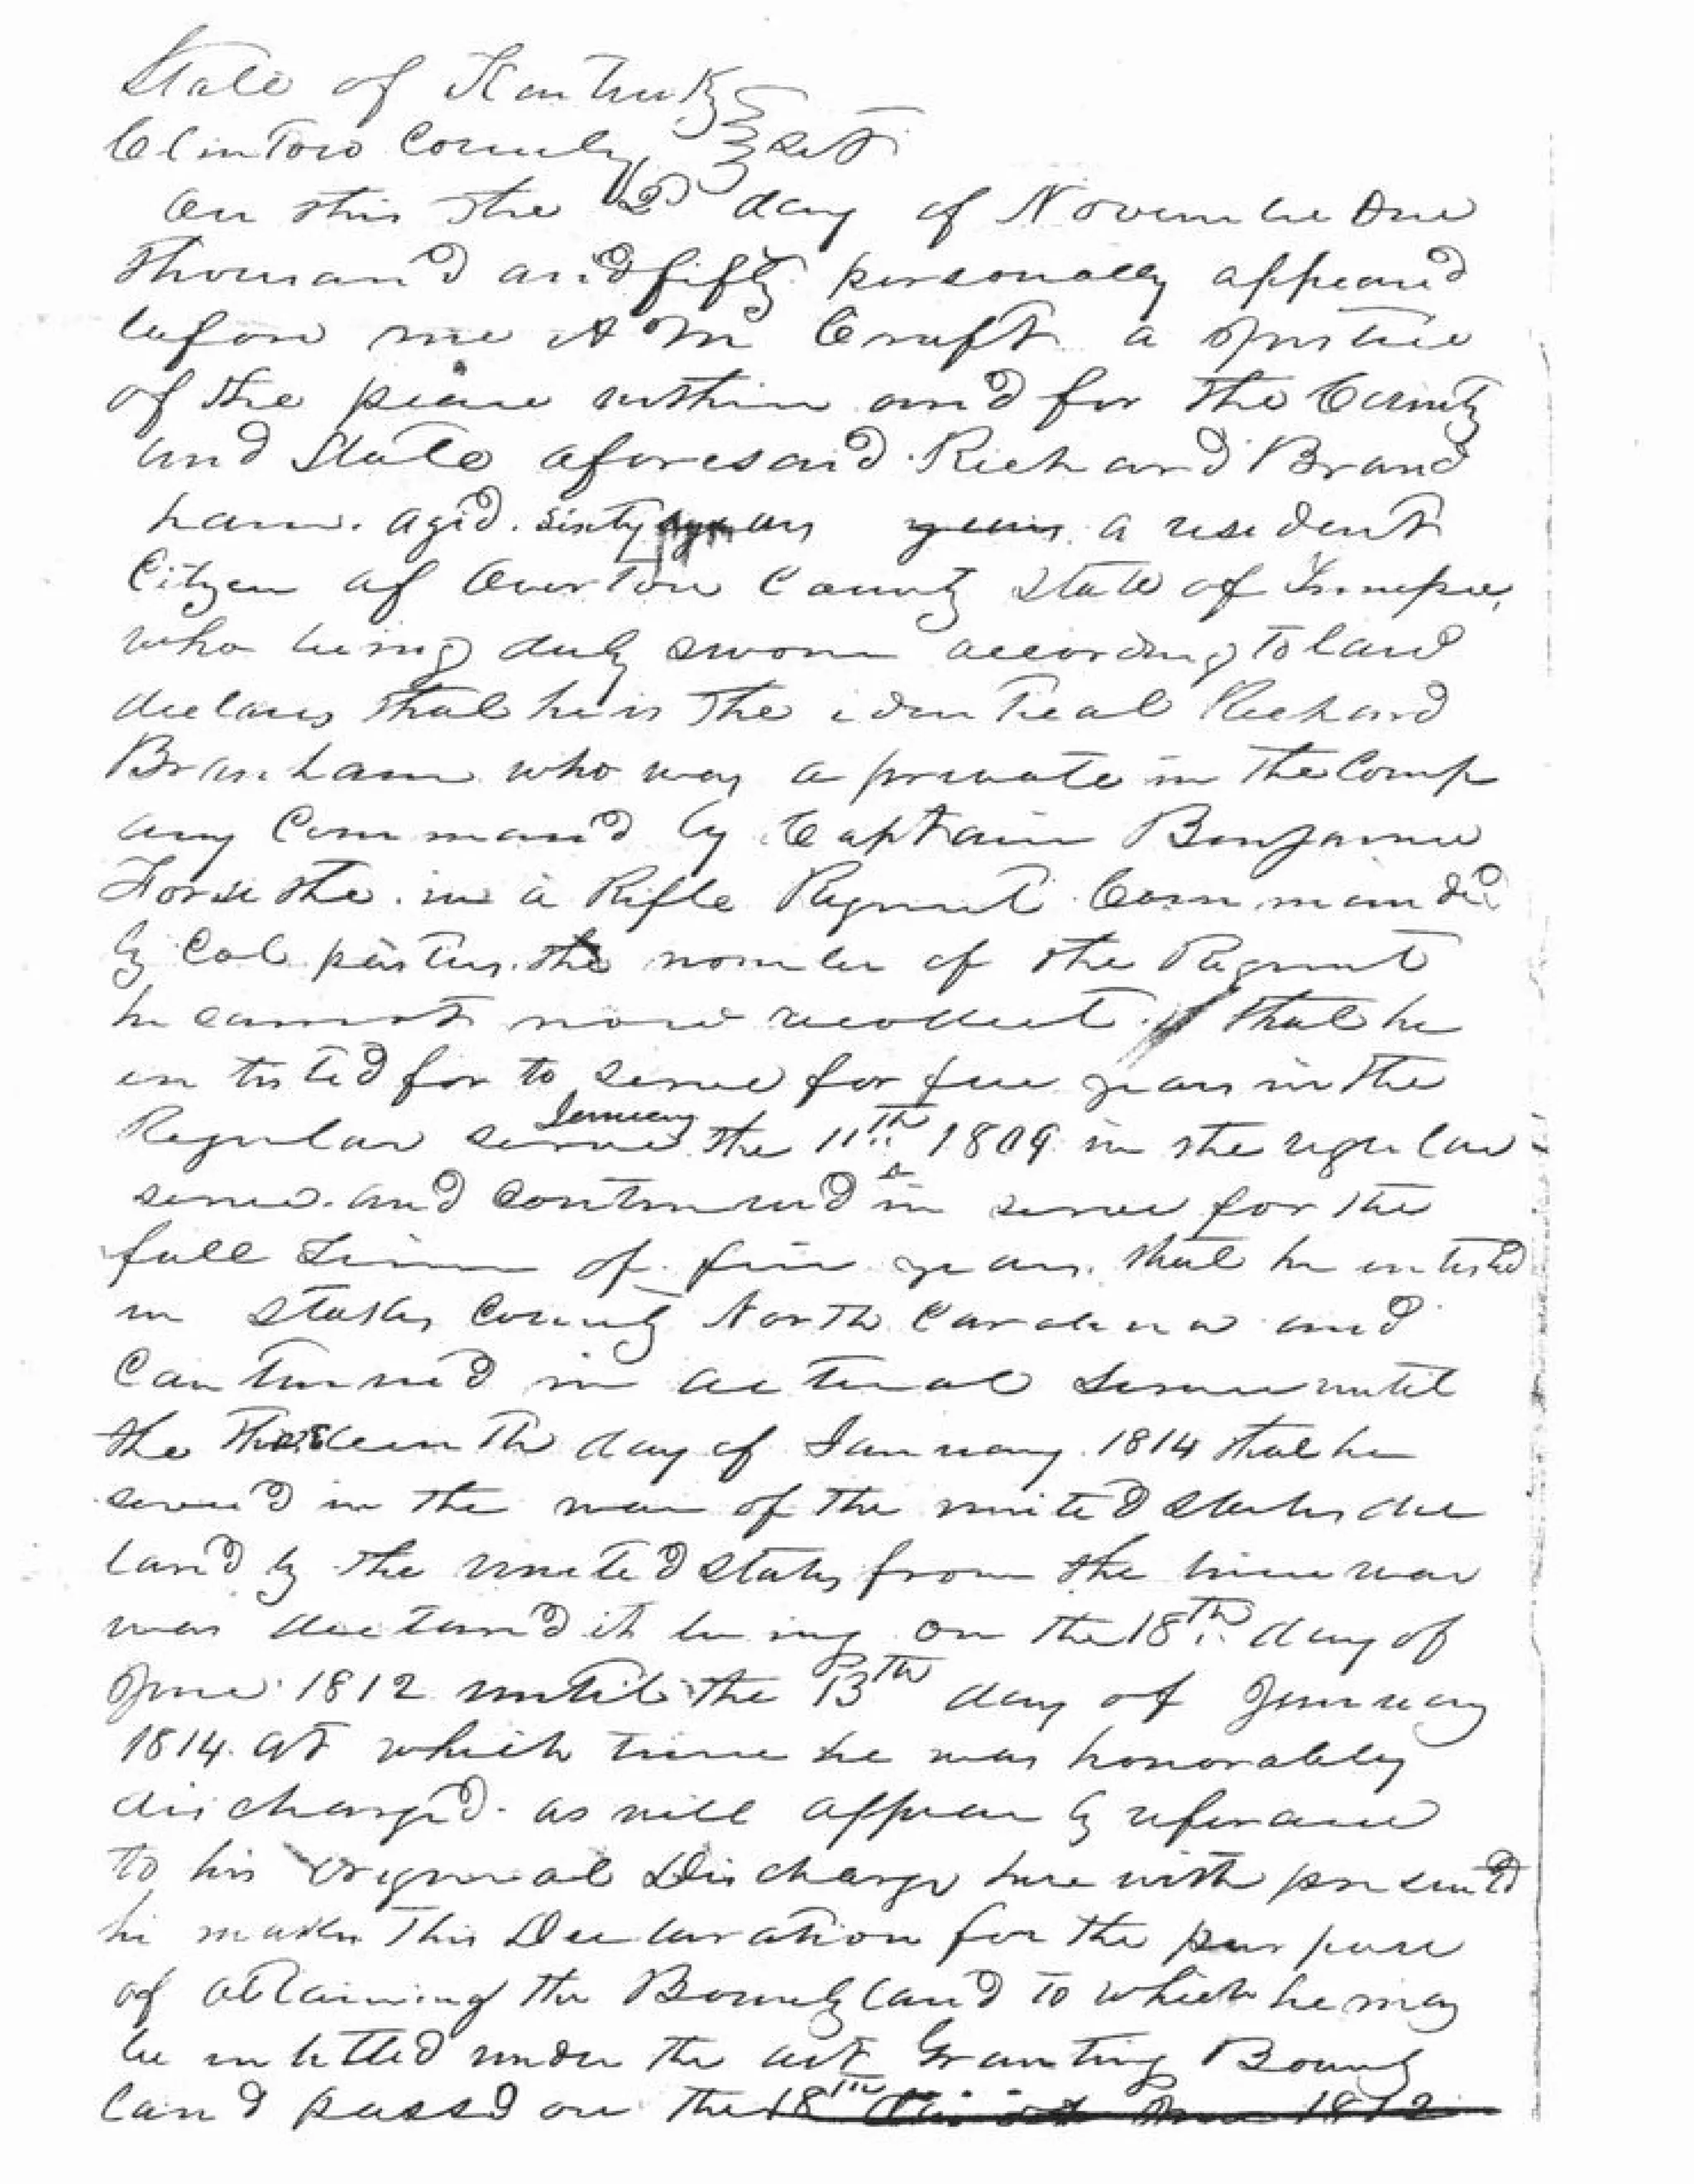 State of Kentucky
Clinton County Sct
On this the 2d day of November One
thousand and fifty personally appeard
before me A M Craft a Justice
of the peace within and for the County
and State aforesaid Richard Bran
ham. aged. sixty years a resident
Citizen of Overton County State of Tennessee,
who being duly sworn according to law
declares that he is the identical Richard
Branham who was a private in the Comp
any Command by Captain Benjamin
Forsithe. in a Rifle Regment Commanded
by Col the number of the Regment
he cannot now recollect. that he
inlisted for to serve for five years in the
Regular service January the 11th 1809 in the regular
service. and continued in service for the
full time of five years. that he inlisted
in Stokes County North Carolina and
Continued in actual service until
the Thirteenth day of January 1814 that he
served in the war of the united States dec
lared by the united States from the time war
was declared it being on the 18th day of
June 1812 until the 13th day of January
1814. at which time he was honorably
discharged. as will appear by referance
to his original Discharge here with presented
he makes This Declaration for the purpose
of obtaining the Bounty land to which he may
be intitled under the act Granting Bounty
land passd on the 18th day of June 1812